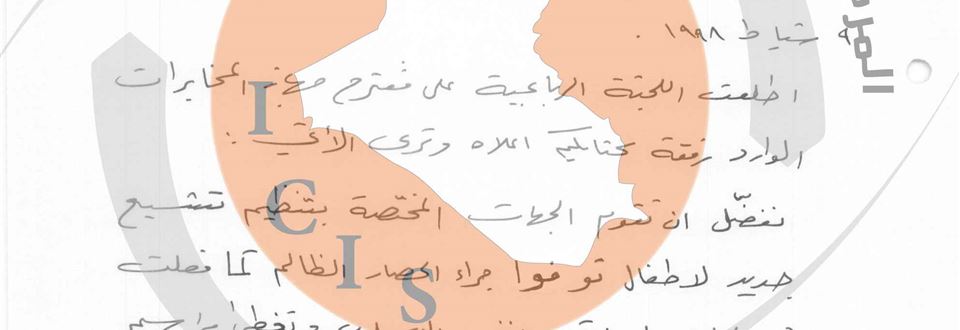 ٩ شباط ١٩٩٨ .
اطلعت اللجنة الرباعية على مقترح جهاز المخابرات
الوارد رفقة كتابكم اعلاه وترى الآتي :
نفضّل ان تقوم الجهات المختصة بتنظيم تشييع
جديد لاطفال توفوا جراء الحصار الظالم كما فعلت
I
C
I
S